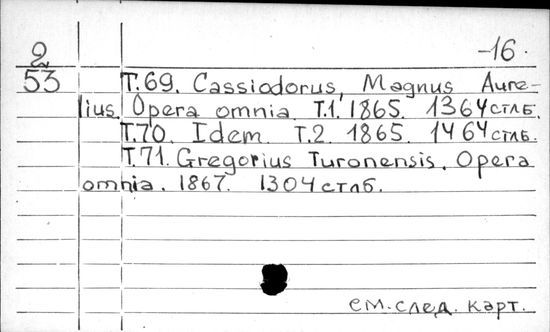 2
53
-16-
Т.69. Cassiodorus, Magnus Aure-
lius. Opera omnia. Т.1. 1865. 1364 стлб.
Т.70. Idem. Т.2. 1865. 1464 стлб.
Т.71. Gregorius Turonensis. Opera
omnia. 1867. 1304 стлб.
см. след. карт.